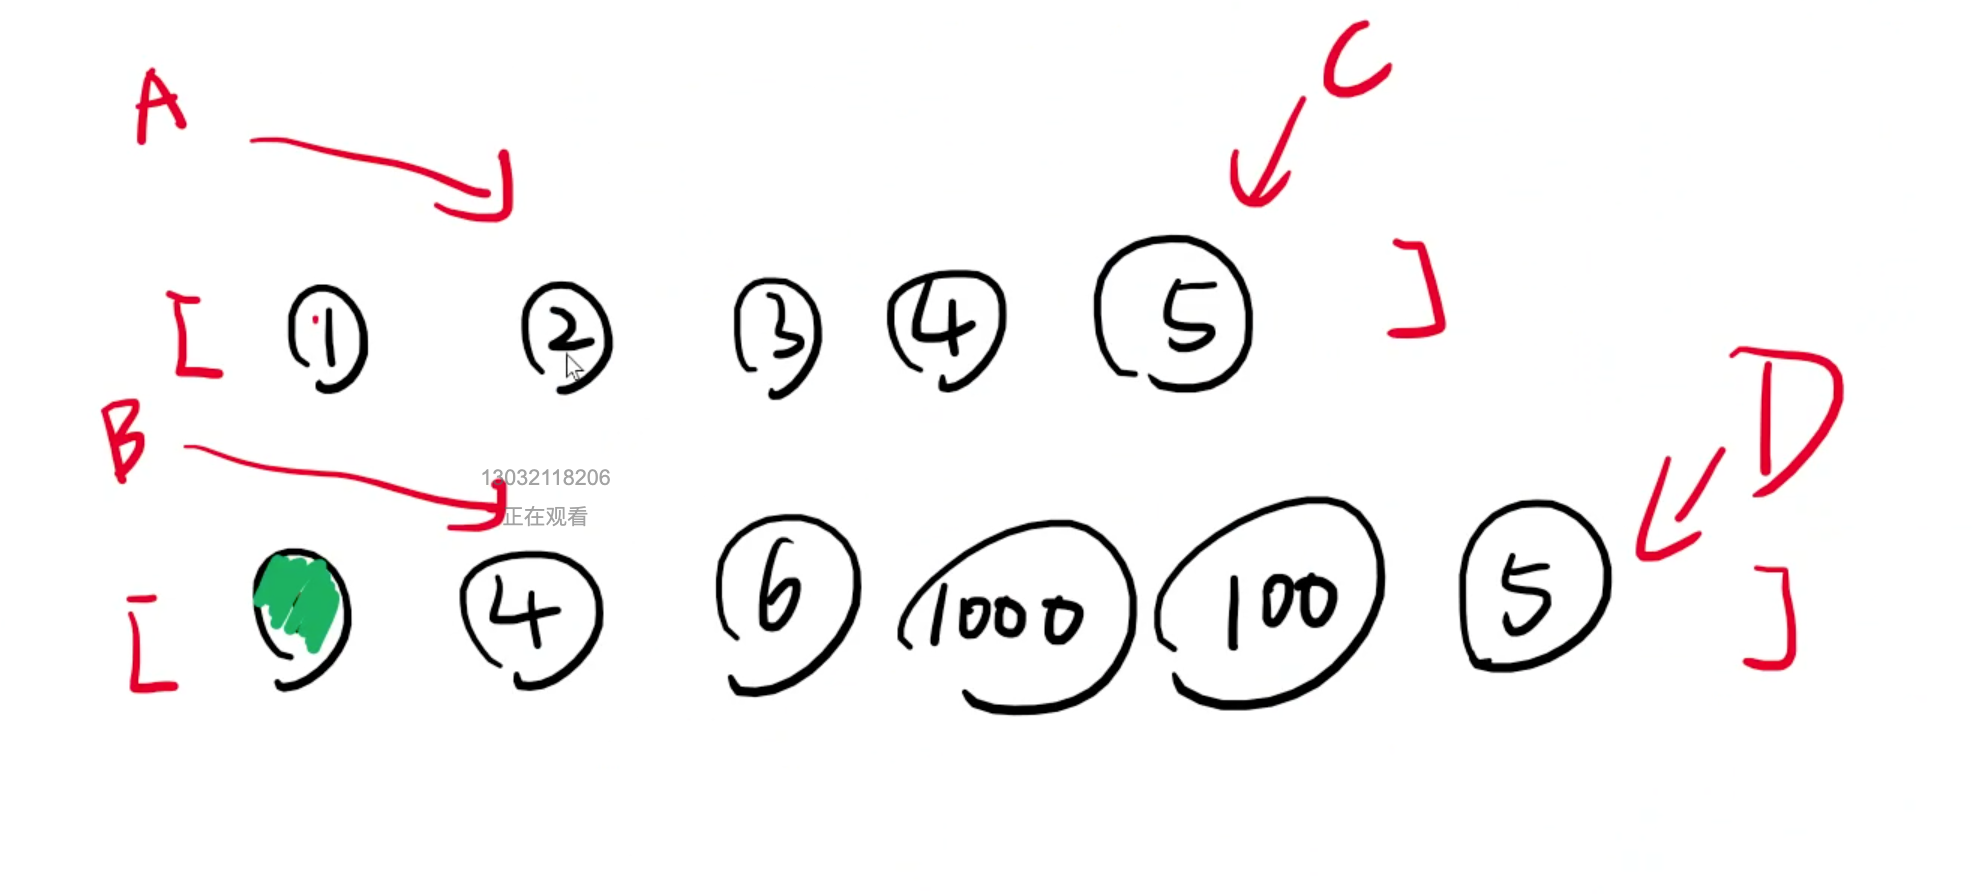 A
C
[ 1 2 3 4 5 ]
D
B
13032118206
正在观看
[ 4 6 1000 100 5 ]